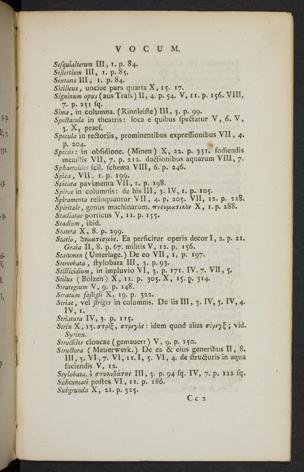 VOCUM.
Sesquialterum III, 1. p. 84.
Sestertium III, 1. p. 85.
Sextans III, 1. p. 84.
Sicilicus, unciae pars quarta X, 15. 17.
Signinum opus (aus Trals) II, 4. p. 54. V, 11. p. 156. VIII,
7. p. 251 sq.
Sima, in columna. (Rinnleiste) III, 3. p. 99.
Spectacula in theatris: loca e quibus spectatur V, 6. V,
3. X, praef.
Specula in tectoriis, prominentibus expressionibus VII, 4.
p. 204.
Specus: in obsidione. (Minen) X, 22. p. 331. fodiendis
metallis VII, 7. p. 212. ductionibus aquarum VIII, 7.
scil. schema VIII, 6. p. 246.
Spica, VII. 1. p. 199.
Spicata pavimenta VII, 1. p. 198.
Spirae in columnis: de his III, 3. IV, 1. p. 105.
Spiramenta relinquantur VII, 4. p. 205. VII, 12. p. 218.
Spiritale, genus machinarum. πνευματικὸν X, 1. p. 288.
Stadiatae porticus V, 11. p. 155.
Stadium, ibid.
Statera X, 8. p. 299.
Statio, Ea perficitur operis decor I, 2. p. 21.
Graia II, 8. p. 67. militis V, 12. p. 156.
Statumen (Unterlage.) De eo VII, 1, p. 197.
Stereobata, stylobata III, 3. p. 93.
Stillicidium, in impluvio VI, 3. p. 171. IV. 7. VII, 5.
Stilus (Bolzen) X, 11. p. 305. X, 15. p. 314.
Strategeum V, 9. p. 148.
Stratum fastigii X, 19. p. 322.
Striae, vel striges in columnis. De iis III, 3. IV, 3. IV, 4.
IV, 1.
Striatura IV, 3. p. 115.
Strix X, 15. idem quod alias vid.
Syrinx.
Structiles cloacae (gemauert) V, 9. p. 150.
Structura (Mauerwerk.) De ea & eius generibus II, 8.
III, 3. VI, 7. VI, 11. I, 5. VI, 4. de structuris in aqua
faciendis V, 12.
Stylobata, ὁ στυλοβάτης III, 3. p. 94 sq. IV, 7. p. 122 sq.
postes VI, 11. p. 186.
Subgrunda X, 21. p. 325.
Cc 2